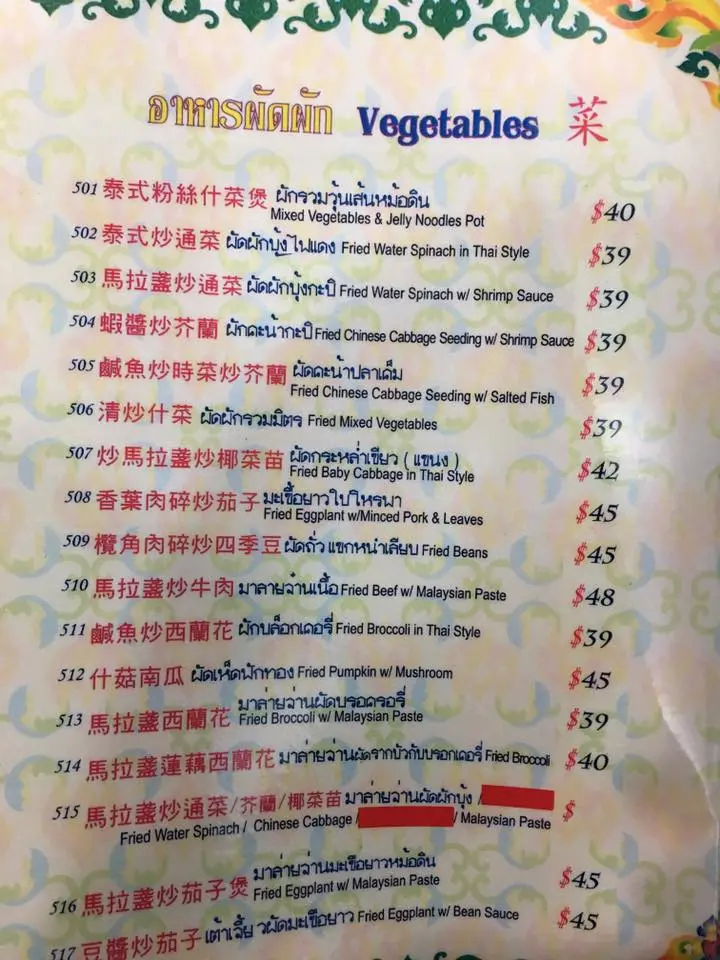 อาหารผัดผัก Vegetables 菜
501 泰式粉絲什菜煲 ผักรวมวุ้นเส้นหม้อดิน
Mixed Vegetables & Jelly Noodles Pot $40
502 泰式炒通菜 ผัดผักบุ้งไฟแดง Fried Water Spinach in Thai Style $39
503 馬拉盞炒通菜 ผัดผักบุ้งกะปิ Fried Water Spinach w/ Shrimp Sauce $39
504 蝦醬炒芥蘭 ผักคะน้ากะปิ Fried Chinese Cabbage Seeding w/ Shrimp Sauce $39
505 鹹魚炒時菜炒芥蘭 ผัดคะน้าปลาเค็ม
Fried Chinese Cabbage Seeding w/ Salted Fish $39
506 清炒什菜 ผัดผักรวมมิตร Fried Mixed Vegetables $39
507 炒馬拉盞炒椰菜苗 ผัดกระหล่ำเขียว ( แขนง )
Fried Baby Cabbage in Thai Style $42
508 香葉肉碎炒茄子 มะเขื้อยาวใบโหรพา
Fried Eggplant w/Minced Pork & Leaves $45
509 欖角肉碎炒四季豆 ผัดถั่วแขกหนำเลียบ Fried Beans $45
510 馬拉盞炒牛肉 มาลายจ๋านเนื้อ Fried Beef w/ Malaysian Paste $48
511 鹹魚炒西蘭花 ผักบล็อกเคอรี่ Fried Broccoli in Thai Style $39
512 什菇南瓜 ผัดเห็ดฟักทอง Fried Pumpkin w/ Mushroom $45
513 馬拉盞西蘭花 มาล่ายจ่านผัดบรอครอรี่
Fried Broccoli w/ Malaysian Paste $39
514 馬拉盞蓮藕西蘭花 มาล่ายจ่านผัดรากบัวกับบรอกเคอรี่ Fried Broccoli $40
515 馬拉盞炒通菜/芥蘭/椰菜苗 มาล่ายจ่านผัดผักบุ้ง / $
Fried Water Spinach / Chinese Cabbage / / Malaysian Paste
516 馬拉盞炒茄子煲 มาล่ายจ่านมะเขือยาวหม้อดิน
Fried Eggplant w/ Malaysian Paste $45
517 豆醬炒茄子 เต้าเจี้ยวผัดมะเขือยาว Fried Eggplant w/ Bean Sauce $45